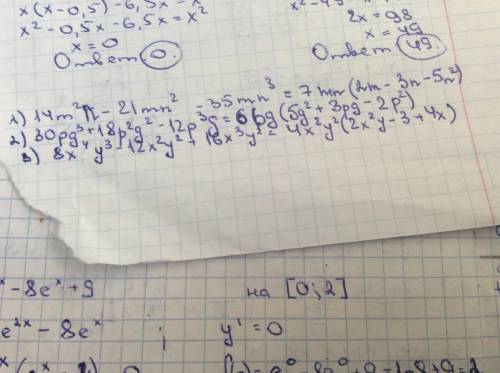 x(x-0,5)-6,5x=x²
x²-0,5x-6,5x=x²
x=0
Ответ 0.
2x=98
x=49
Ответ 49.
1) 14m²n-21mn²-35mn³=7mn(2m-3n-5n²)
2) 30pg³+18p²g²-12p³g=6pg(5g²+3pg-2p²)
3) 8x⁴y³-12x²y²+16x³y²=4x²y²(2x²y-3+4x)
-8eˣ+9 на [0;2]
e²ˣ-8eˣ ; y'=0